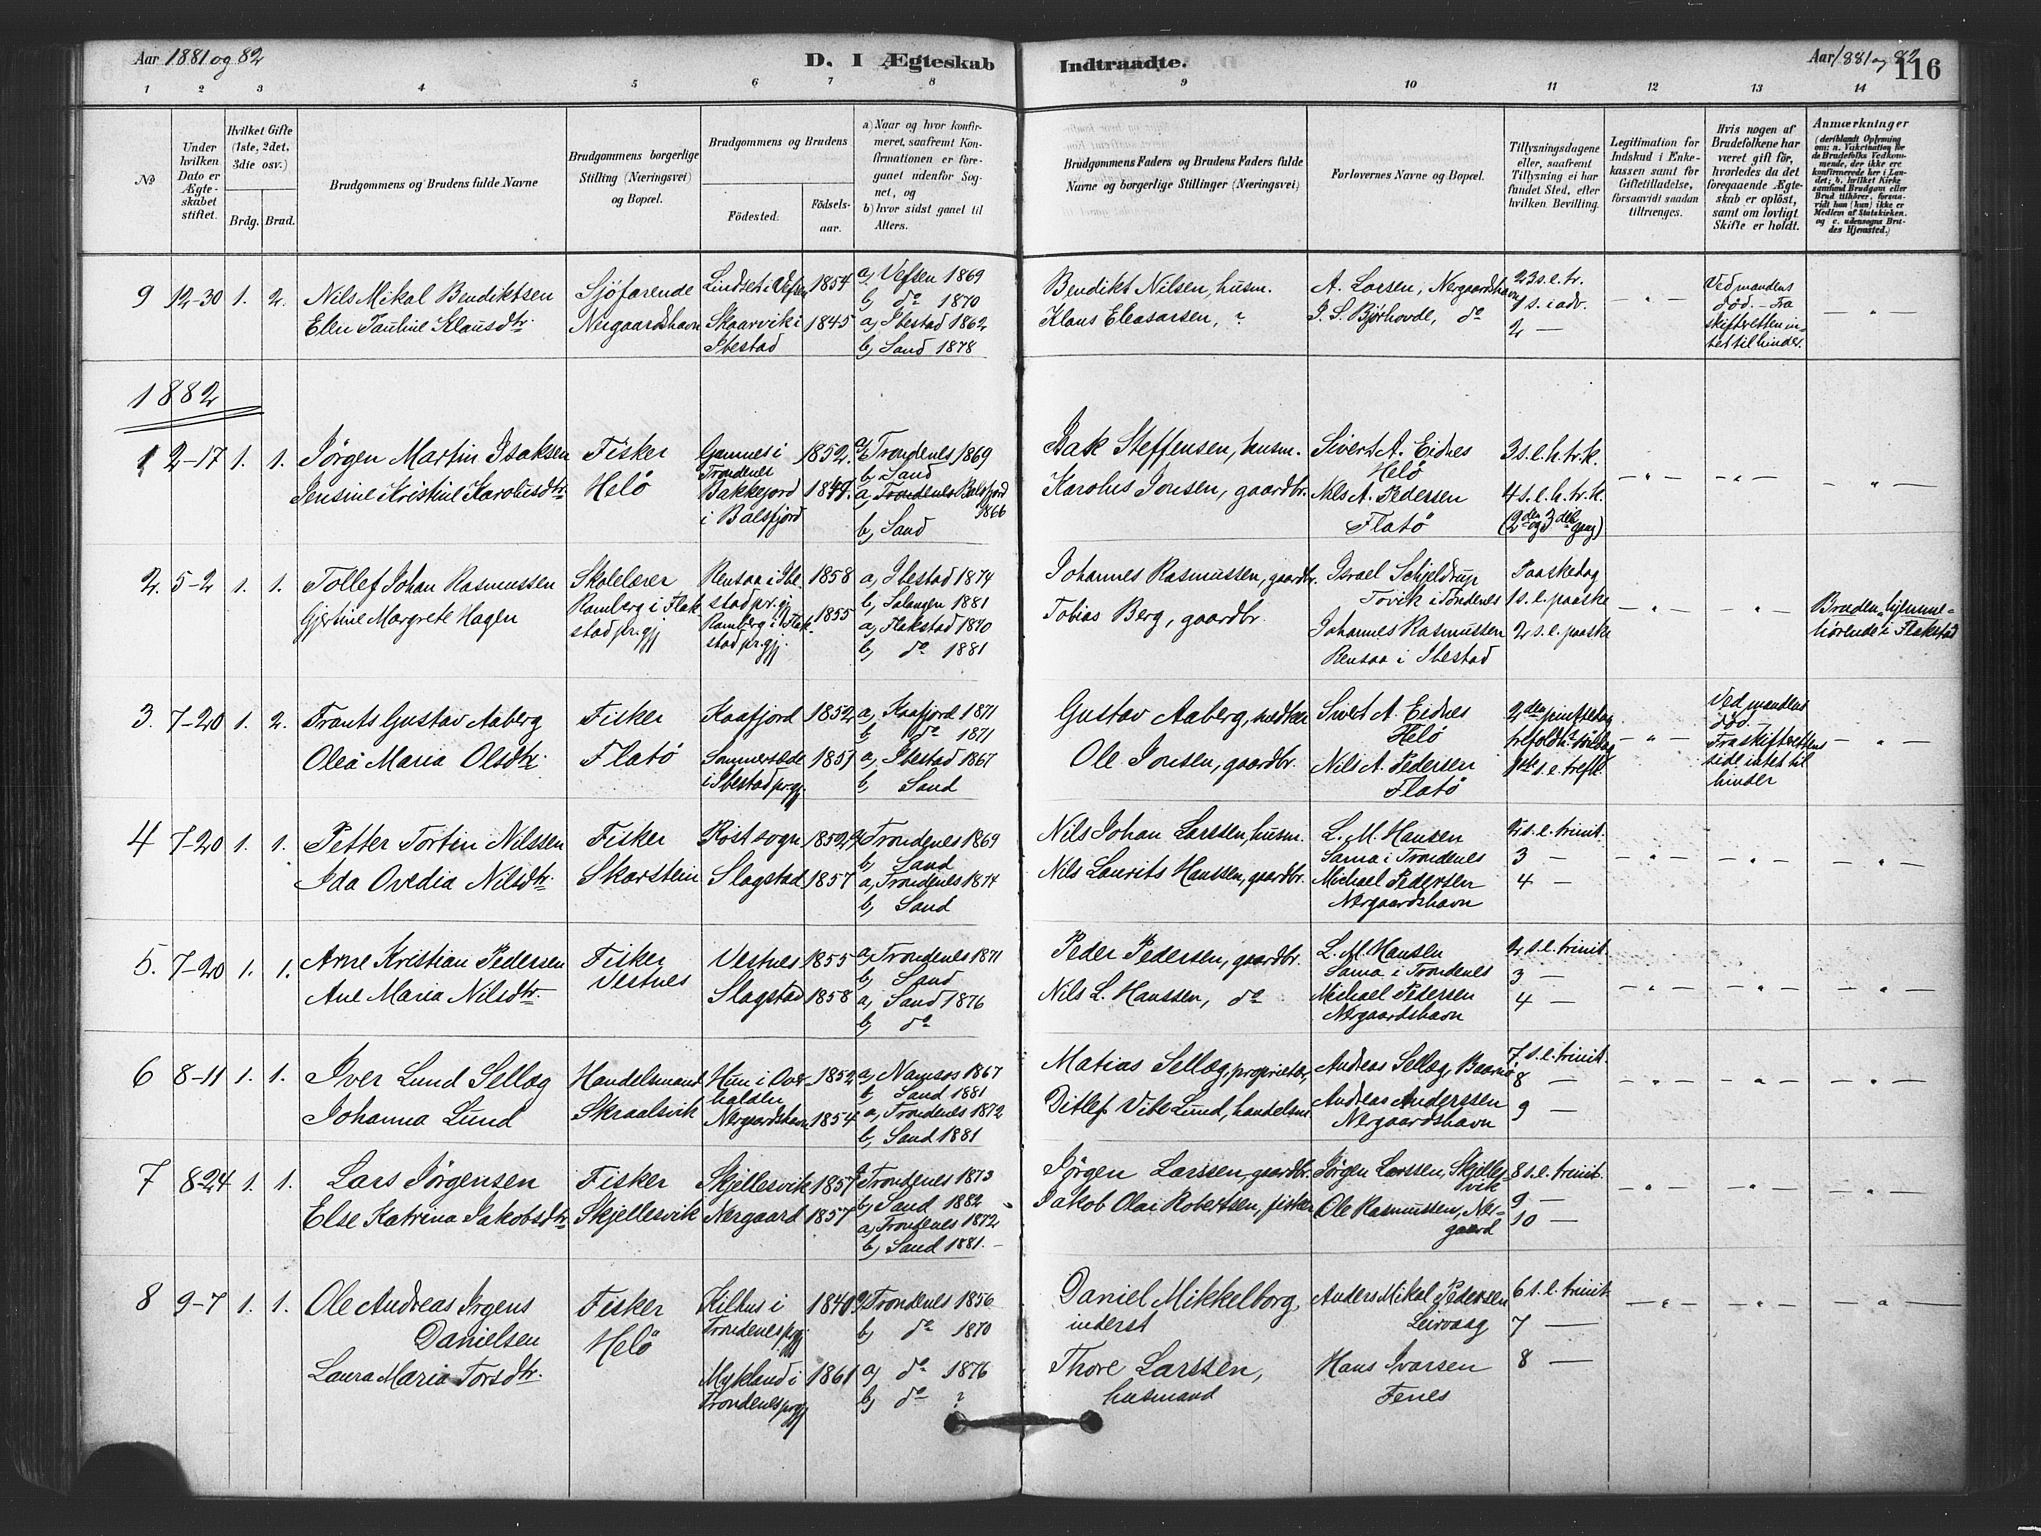 Aar 1881 og 82
D. I Ægteskab Indtraadte.
Aar 1881 og 82
116
1 2 3 4 5 6 7 8 9 10 11 12 13 14
No
Under hvilken Dato er Ægteskabet stiftet.
Hvilket Gifte (1ste, 2det, 3die osv.)
Brdg. Brud.
Brudgommens og Brudens fulde Navne
Brudgommens borgerlige Stilling (Næringsvei) og Bopæl.
Brudgommens og Brudens
Fødested.
Fødselsaar.
a) Naar og hvor konfirmeret, saafremt Konfirmationen er foregaaet udenfor Sognet, og
b) hvor sidst gaaet til Alters.
Brudgommens Faders og Brudens Faders fulde Navne og borgerlige Stillinger (Næringsvei)
Forlovernes Navne og Bopæl.
Tillysningsdagene eller, saafremt Tillysning ei har fundet Sted, efter hvilken Bevilling.
Legitimation for Indskud i Enkekassen samt for Giftetilladelse, forsaavidt saadan tiltrenges.
Hvis nogen af Brudefolkene har været gift før, hvorledes da det foregaaende Ægteskab er opløst, samt om lovligt Skifte er holdt.
Anmærkninger
(deriblandt Oplysning om: a. Vakcination for de Brudefolks Vedkommende, der ikke ere konfirmerede her i Landet; b. hvilket Kirkesamfund Brudgom eller Brud tilhører, forsaavidt han (hun) ikke er Medlem af Statskirken. og c. udensogns Brudes Hjemsted.)
9 12-30 1. 2. Nils Mikal Bendiktsen
Elen Pauline Klausdtr.
Sjøfarende
Nergaardshavn
Lindset i Vefsen 1854
Skaarvik i 1845
Ibestad
a, Vefsen 1869
b, do 1870
a, Ibestad 1862
b, Sand 1878
Bendikt Nilsen, husm.
Klaus Eleasarsen, ?
A. Larsen, Nergaardshavn
J. S. Bjørhovde, do
23 s. e. tr.
1 s. i adv.
2 —
— " —
Ved mandens
død. — Fra
skifteretten in-
tet til hinder.
— " —
1882
1 2-17 1. 1. Jørgen Martin Isaksen
Jensine Kristine Karolusdtr.
Fisker
Helø
Gamnes i 1852
Trondenes
Bakkejord 1849.
i Balsfjord
a, Trondenes 1869
b, Sand
a, Trondenes Balsfjord
1866
b, Sand
Isak Steffensen, husm.
Karolus Jonsen, gaardbr.
Sivert A. Eidnes
Helø
Nils A. Pedersen
Flatø
3 s. e. h. tr. k.
4 s. e. h. tr. k.
(2den og 3die gang)
— " — — " — — " —
2. 5-2 1. 1. Tollef Johan Rasmussen
Gjertine Margrete Hagen
Skolelærer
Ramberg i Flak-
stad pr.gj
Rensaa i Ibe- 1858
stad pr. gj
Ramberg i Flak- 1855
stad pr.gj.
a, Ibestad 1874
b, Salangen 1881
a, Flakstad 1870
b, do 1881
Johannes Rasmussen, gaardbr.
Tobias Berg, gaardbr.
Israel Schjeldrup
Tovik i Trondenes
Johannes Rasmussen
Rensaa i Ibestad
Paaskedag
1 s. e. paaske
2 s. e. paaske
— " — — " —
Bruden hjemme-
hørende i Flakstad
3. 7-20 1. 2. Frants Gustav Aaberg
Olea Maria Olsdtr.
Fisker
Flatø
Kaafjord 1852
Sommersæde 1851
i Ibestad pr.gj
a, Kaafjord 1871
b do 1871
a, Ibestad 1867
b, Sand
Gustav Aaberg,
Ole Jonsen, gaardbr.
Sivert A. Eidnes
Helø
Nils A. Pedersen
Flatø
2den pintsedag
1ste s. e. trefh.
— " —
Ved mandens
død. —
Fra skifterettens
side intet til
hinder
— " —
4 7-20 1. 1. Petter Tortin Nilssen
Ida Ovedia Nilsdtr.
Fisker
Skarstein
Kostsogn 1852
Slagstad 1857
a, Trondenes 1869
b, Sand
a, Trondenes 1874
b, Sand
Nils Johan Larssen, husm.
Nils Laurits Hanssen, gaardbr.
L. M. Hansen
Sama i Trondenes
Michael Pedersen
Nergaardshavn
2 s. e. trinit.
3 —
4 —
— " — — " — — " —
5. 7-20 1. 1. Arne Kristian Pedersen
Ane Maria Nilsdtr.
Fisker
Vestnes
Vestnes 1855
Slagstad 1858
a, Trondenes 1871
b, Sand
a, Sand 1876
b, do
Peder Pedersen, gaardbr.
Nils L. Hanssen, do
L. M. Hansen
Sama i Trondenes
Michael Pedersen
Nergaardshavn
2 s. e. trinit.
3 —
4 —
— " — — " — — " —
6 8-11 1. 1. Iver Lund Sellæg
Johanna Lund
Handelsmand
Skraalsvik
Hun i Over- 1852
halden
Nergaardshavn 1854
a, Namsos 1867
b, Sand 1881
a, Trondenes 1872
b, Sand 1881
Matias Sellæg, proprietær,
Ditlef Vibe Lund, handelsm.
Andreas Sellæg,
Andreas Anderssen
Nergaardshavn
7. s. e. trinit.
8 —
9 —
— " — — " — — " —
7 8-24 1. 1. Lars Jørgensen
Else Katrina Jakobsdtr.
Fisker
Skjellesvik
Skjellesvik 1857
Nergaard 1857
a, Trondenes 1873
b, Sand 1882
a, Trondenes 1872
b, Sand 1881. —
Jørgen Larssen, gaardbr.
Jakob Olai Robertsen, fisker
Jørgen Larssen, Skjelles-
vik
Ole Rasmussen, Ner-
gaard
8 s. e. trinit.
9 —
10 —
— " — — " — — " —
8 9-7 1. 1. Ole Andreas Ørgens
Danielsen
Laura Maria Torsdtr.
Fisker
Helø
Kilhus i 1840
Trondenes prgj
Mykland i 1861
Trondenes prgj
a, Trondenes 1856
b, do 1870
a, do 1876
b, do ?
Daniel Mikkelborg,
inderst
Thore Larssen,
husmand
Anders Mikal Pedersen
Leirvaag
Hans Ivarsen
Fenes
6 s. e. trinit
7 —
8 —
— " — — " — — " —